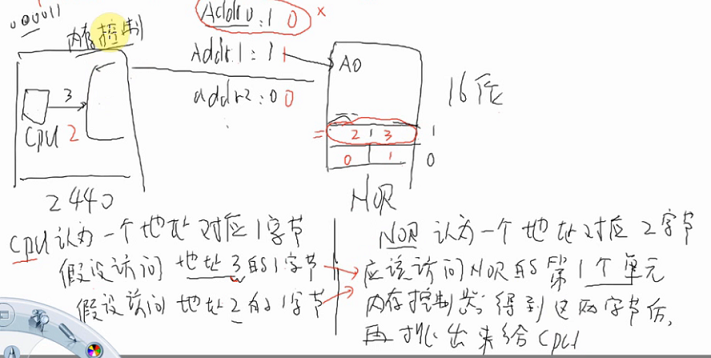 内存控制
Addr0:1 0 x
Addr1:1 1
addr2:0 0
A0
16位
3
CPU 2
= 2 3 1
0 1 0
2440
NOR
CPU认为一个地址对应1字节
假设访问地址3的1字节
假设访问地址2的1字节
NOR认为一个地址对应2字节
应该访问NOR的第1个单元
内存控制器得到这两字节后,
再挑出来给CPU